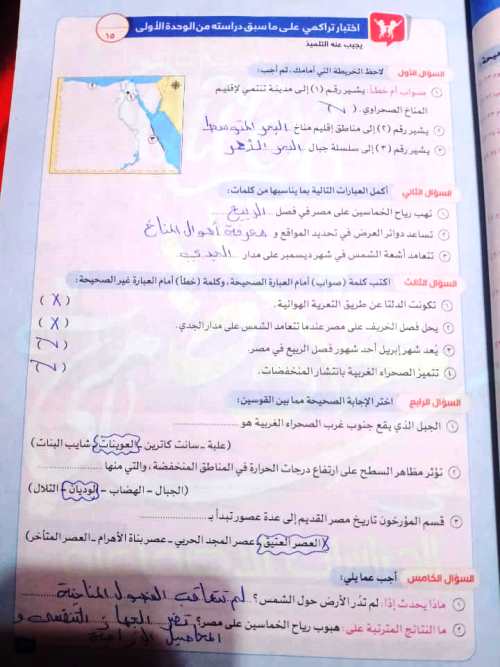 اختبار تراكمي على ما سبق دراسته من الوحدة الأولى
١٥
يجيب عنه التلميذ
السؤال الأول لاحظ الخريطة التي أمامك، ثم أجب:
١ صواب أم خطأ: يشير رقم (١) إلى مدينة تنتمي لإقليم
المناخ الصحراوي. ( )
٢ يشير رقم (٢) إلى مناطق إقليم مناخ البحر المتوسط
٣ يشير رقم (٣) إلى سلسلة جبال البحر الأحمر
السؤال الثاني أكمل العبارات التالية بما يناسبها من كلمات:
١ تهب رياح الخماسين على مصر في فصل الربيع
٢ تساعد دوائر العرض في تحديد المواقع و معرفة أحوال المناخ
٣ تتعامد أشعة الشمس في شهر ديسمبر على مدار الجدي
السؤال الثالث اكتب كلمة (صواب) أمام العبارة الصحيحة، وكلمة (خطأ) أمام العبارة غير الصحيحة:
١ تكونت الدلتا عن طريق التعرية الهوائية. (X)
٢ يحل فصل الخريف على مصر عندما تتعامد الشمس على مدار الجدي. (X)
٣ يُعد شهر إبريل أحد شهور فصل الربيع في مصر. ( )
٤ تتميز الصحراء الغربية بانتشار المنخفضات. ( )
السؤال الرابع اختر الإجابة الصحيحة مما بين القوسين:
١ الجبل الذي يقع جنوب غرب الصحراء الغربية هو ..................
(علبة – سانت كاترين – العوينات – شايب البنات)
٢ تؤثر مظاهر السطح على ارتفاع درجات الحرارة في المناطق المنخفضة، والتي منها ..................
(الجبال – الهضاب – الوديان – التلال)
٣ قسم المؤرخون تاريخ مصر القديم إلى عدة عصور تبدأ بـ ..................
(العصر العتيق – عصر المجد الحربي – عصر بناة الأهرام – العصر المتأخر)
السؤال الخامس أجب عما يلي:
١ ماذا يحدث إذا: لم تدُر الأرض حول الشمس؟ لم تتعاقب الفصول المناخية
٢ ما النتائج المترتبة على: هبوب رياح الخماسين على مصر؟ تضر الجهاز التنفسي و
المحاصيل الزراعية